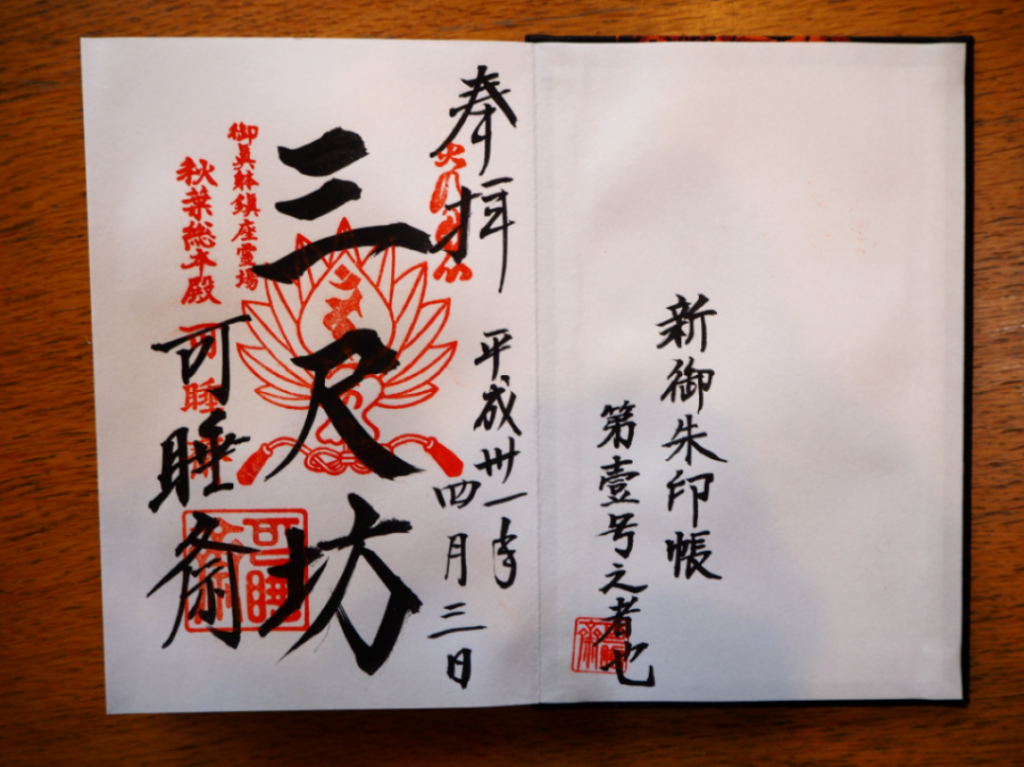 新御朱印帳
第壹号之者也
奉拝
平成卅一年
四月三日
三尺坊
御真躰鎮座霊場
秋葉総本殿
可睡斎
可睡